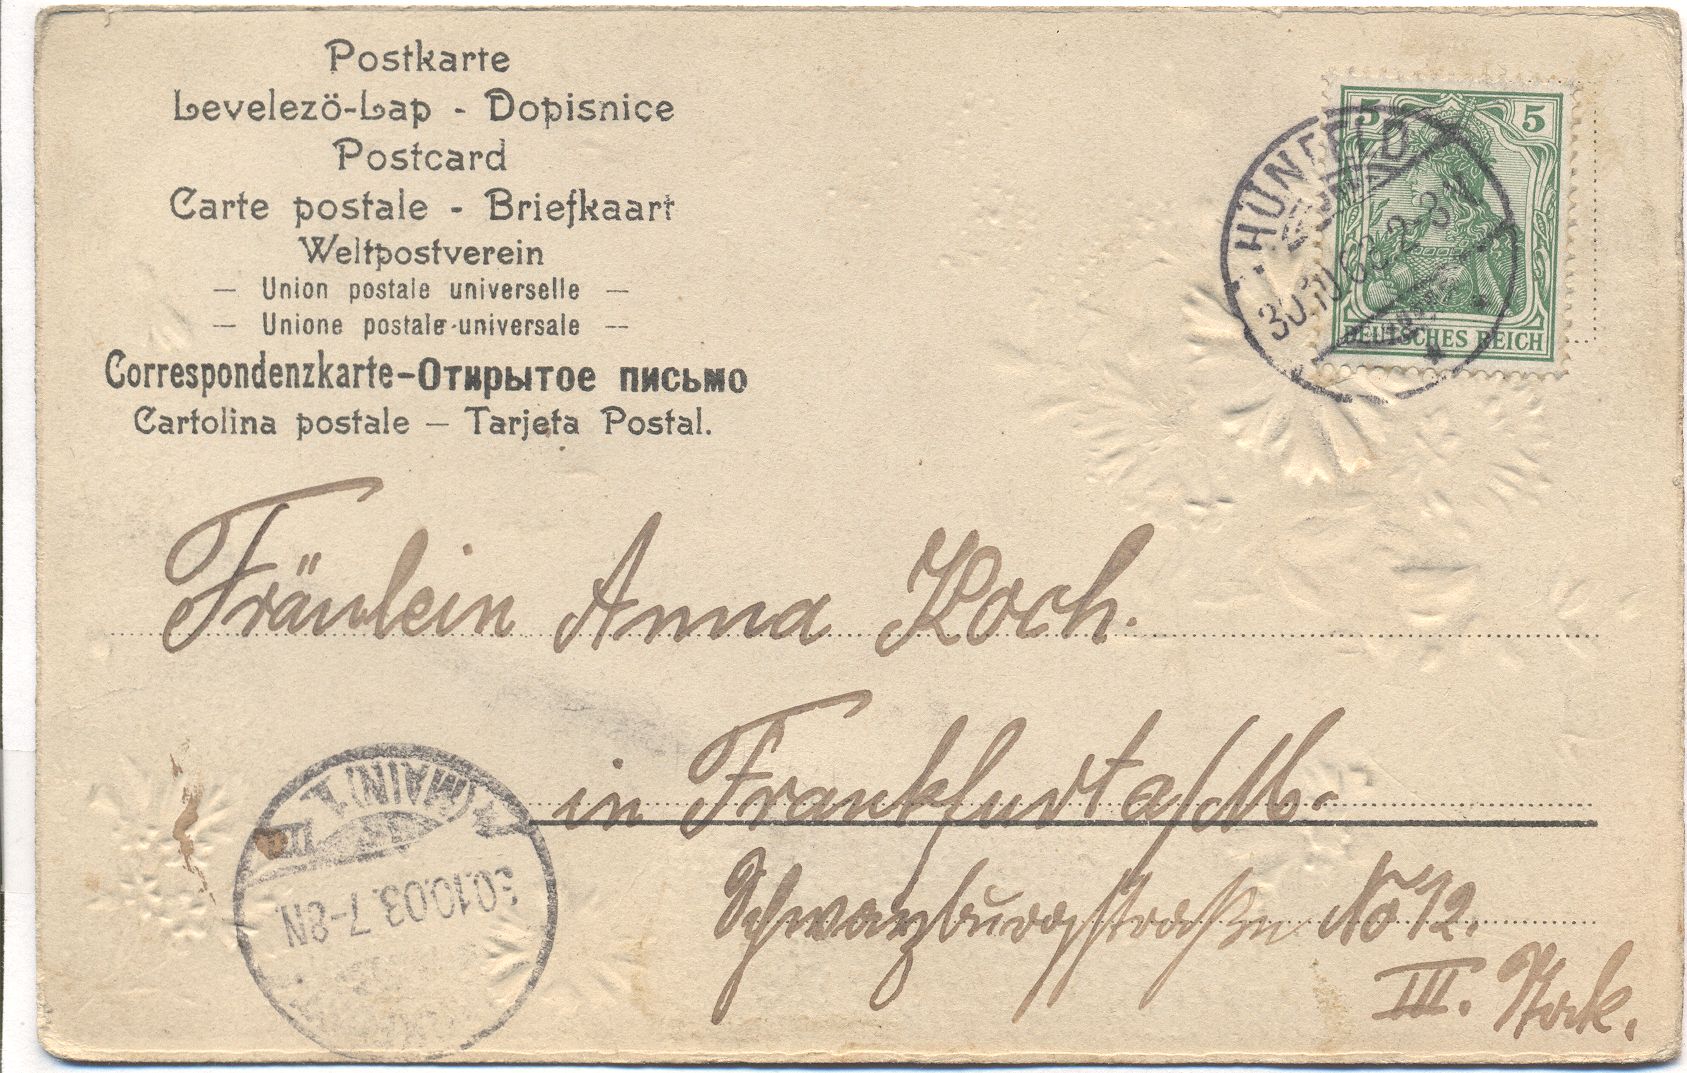 Postkarte
Levelezö-Lap - Dopisnice
Postcard
Carte postale - Briefkaart
Weltpostverein
— Union postale universelle —
— Unione postale universale —
Correspondenzkarte-Открытое письмо
Cartolina postale — Tarjeta Postal.
5 5
DEUTSCHES REICH
HÜNFELD
30.10.03. 2-3N
Fräulein Anna Koch.
in Frankfurt a/M.
Schwarzburgstraße No 12.
III. Stock.
(MAIN)
30.10.03. 7-8N